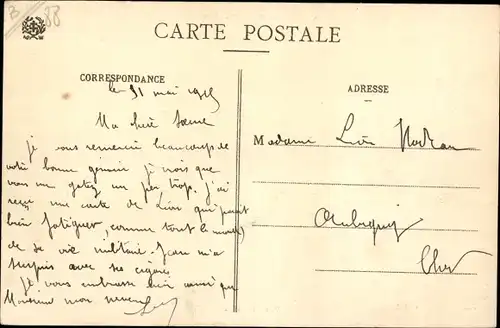 B 88
CARTE POSTALE
CORRESPONDANCE
ADRESSE
le 31 mai 1915
Ma chère
je vous remercie beaucoup de
votre bonne je crois que
vous me gâtez un peu trop. J'ai
reçu une carte de Léon qui paraît
bien fatiguer, comme tout le monde
de sa vie militaire. Jean m'a
surpris avec ses
Je vous embrasse bien ainsi que
Monsieur mon neveu
Madame Léon
Aubigny
Cher